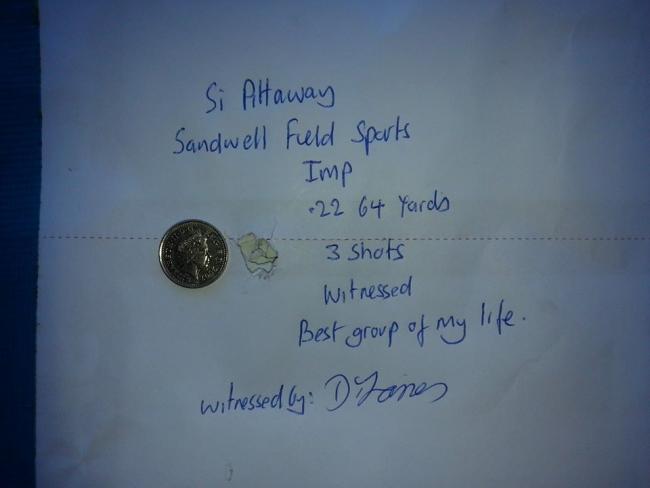 Si Attaway
Sandwell Field Sports
Imp
.22 64 Yards
3 shots
Witnessed
Best group of my life.
witnessed by: